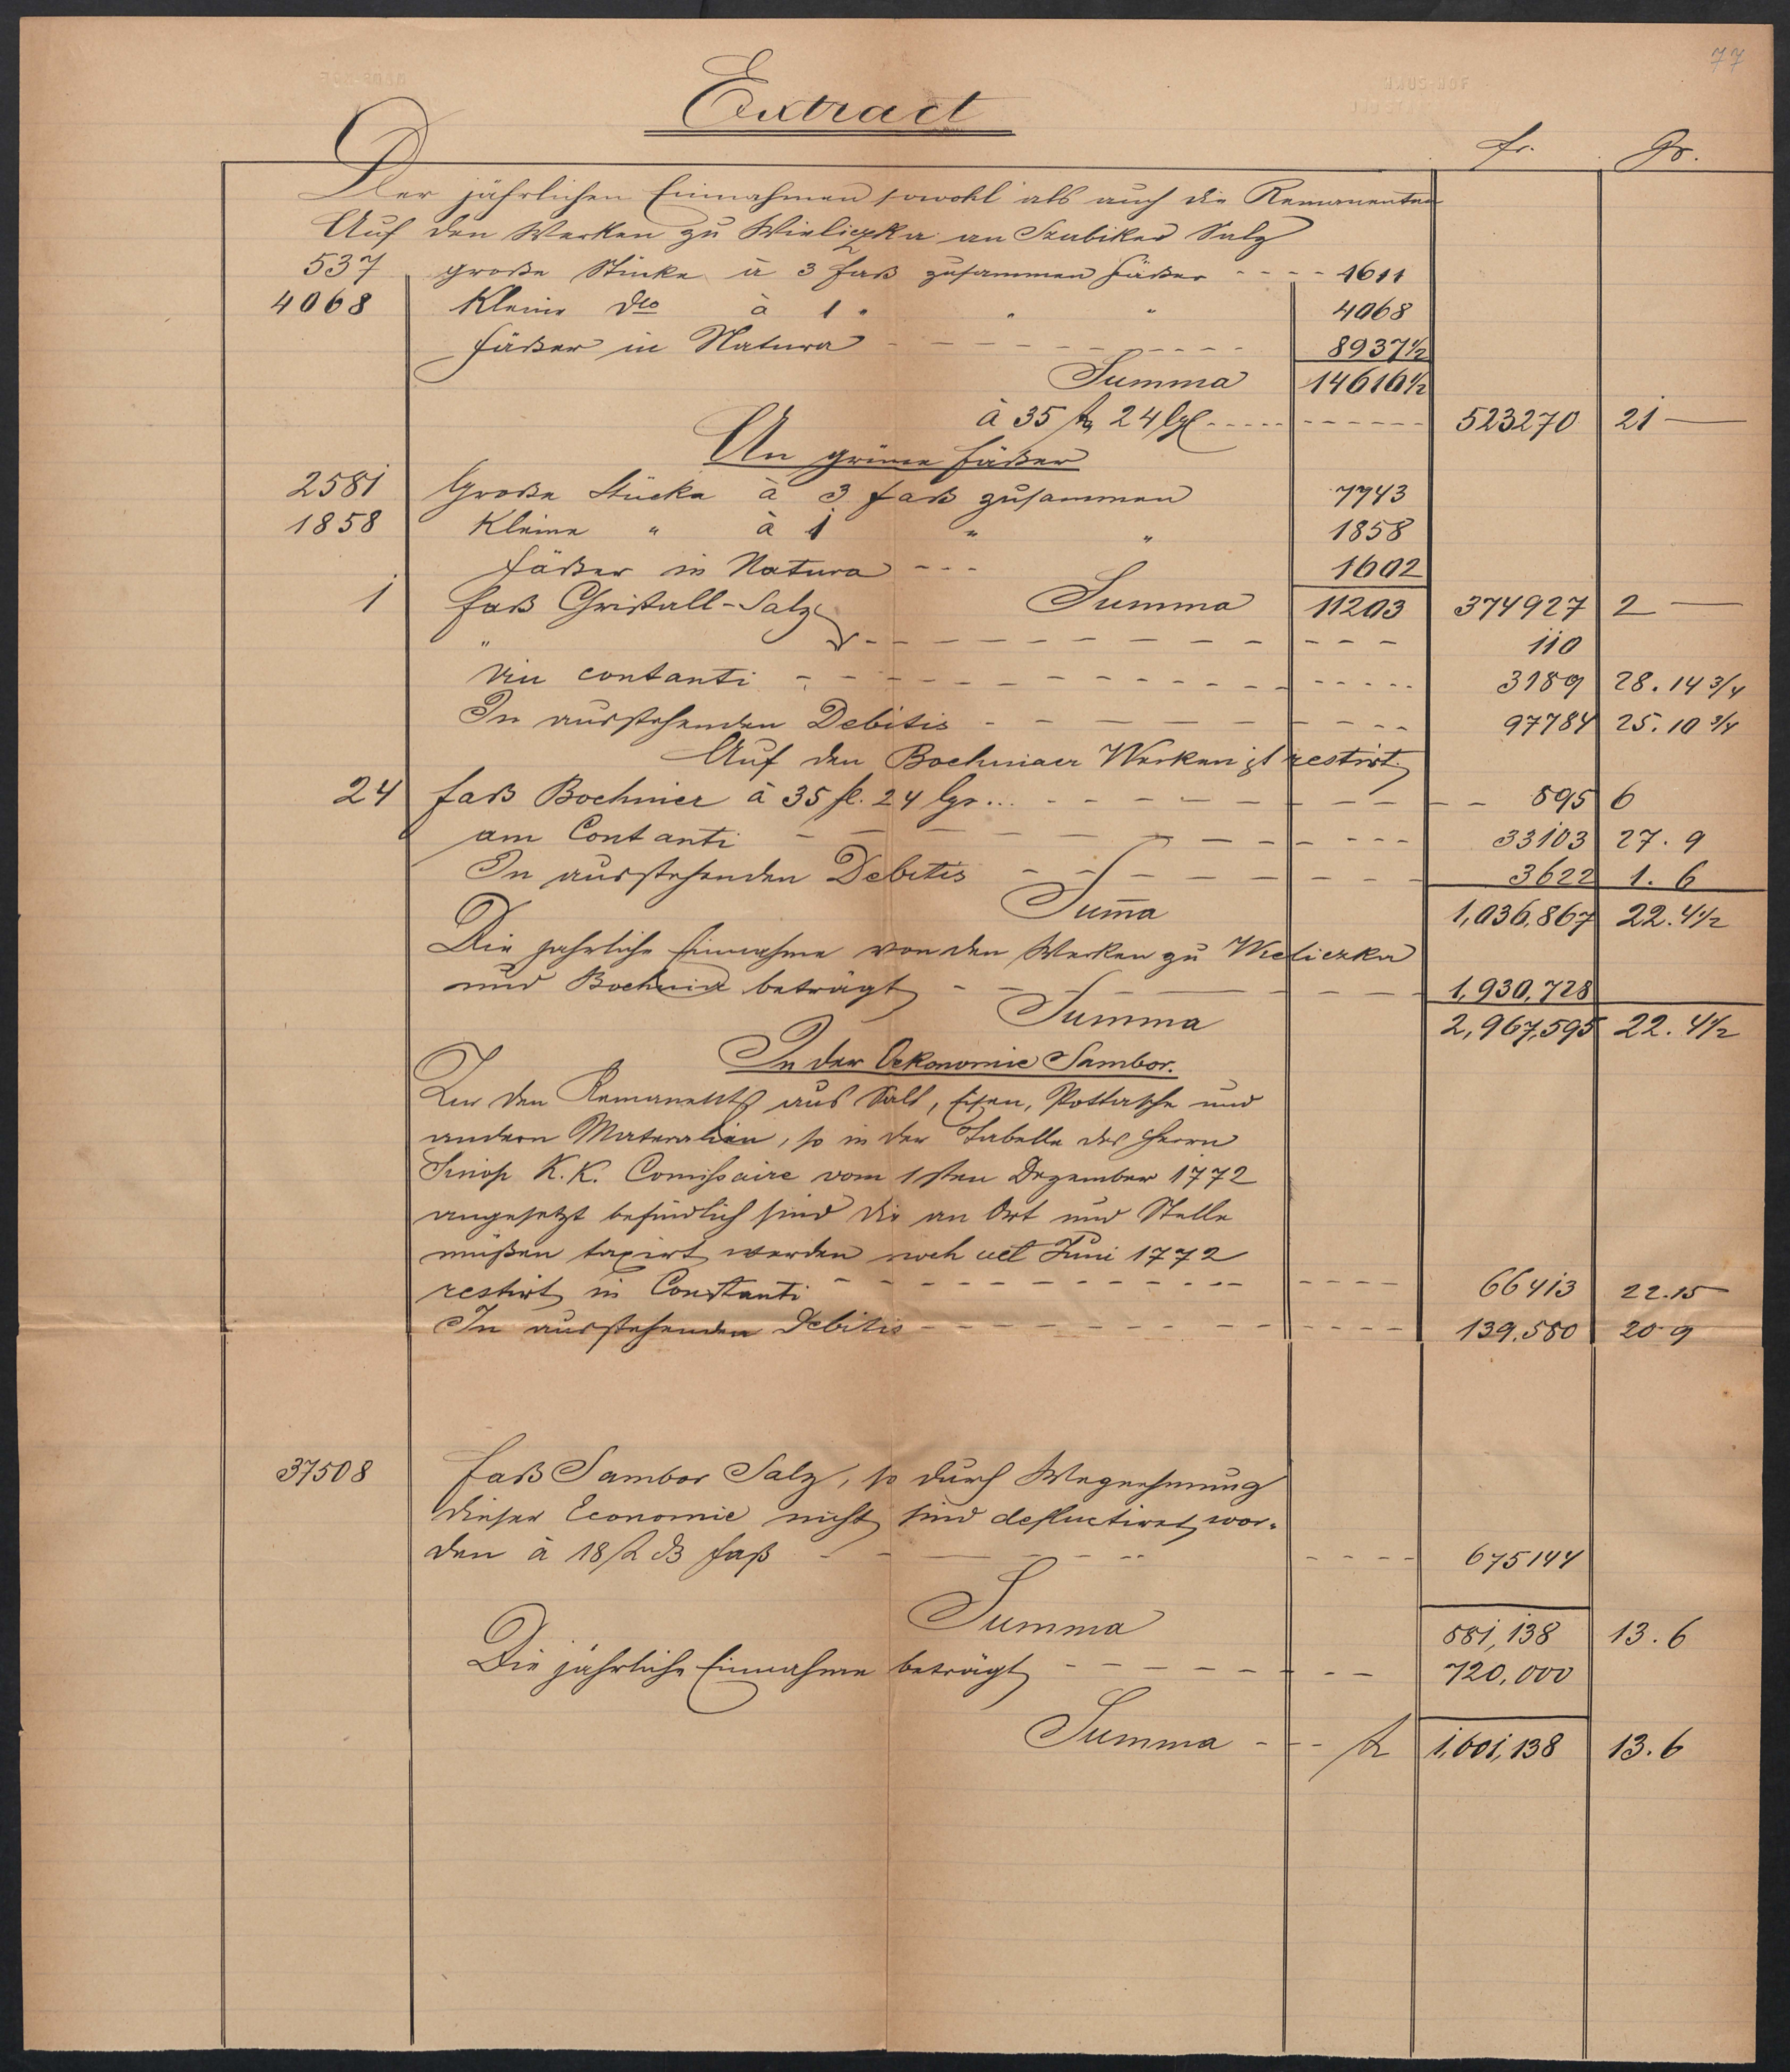 77
Extract
fr. Gr.
Der jährlichen Einnahmen sowohl als auch die Remanenten
Auf den Werken zu Wieliczka an Szubiker Salz
537 große Stücke à 3 Faß zusammen Fäßer - - - - 1611
4068 Kleine dto à 1 " " " 4068
Fäßer in Natura - - - - - - - - 8937 1/2
Summa 14616 1/2
à 35 24 - - - - - - - - 523270 21 —
An grüne Fäßer
2581 Große Stücke à 3 Faß zusammen 7743
1858 Kleine " à 1 " " 1858
Fäßer in Natura - - - 1602
1 Faß Christall-Salz Summa 11203 374927 2 —
" - - - - - - - - - - 110
contanti - - - - - - - - - - 3189 28. 14 3/4
In ausstehenden Debitis - - - - - - - - - 97784 25. 10 3/4
Auf den Bochniaer Werken ist restirt
24 Faß Bochnier à 35 fl. 24 lgr... - - - - - - - - - - 895 6
am Contanti - - - - - - - - - - 33103 27. 9
In ausstehenden Debitis - - - - - - - - - 3622 1. 6
Sum̅a 1,036,867 22. 4 1/2
Die jahrliche Einnahme von den Werken zu Wieliczka
und Bochnia beträgt - - - - - - - 1,930,728
Summa 2,967,595 22. 4 1/2
In der Oekonomie Sambor.
den aus Salt, Eisen, Pottasche und
andern Materalien, so in der Tabelle des Herrn
K. K. Comissaire vom 1sten Dezember 1772
angesetzt befindlich sind die an Ort und Stelle
müßen taxirt werden noch Juni 1772
restirt in Constanti - - - - - - - - - - 66413 22. 15
In ausstehenden Debitis - - - - - - - - - - 139,580 20 9
37508 Faß Sambor Salz, so durch Wegnehmung
dieser Economie nicht sind wor-
den à 18 Faß - - - - - - - - 675144
Summa 881,138 13. 6
Die jährliche Einnahme beträgt - - - - - - - - 720,000
Summa - - - 1,601,138 13. 6